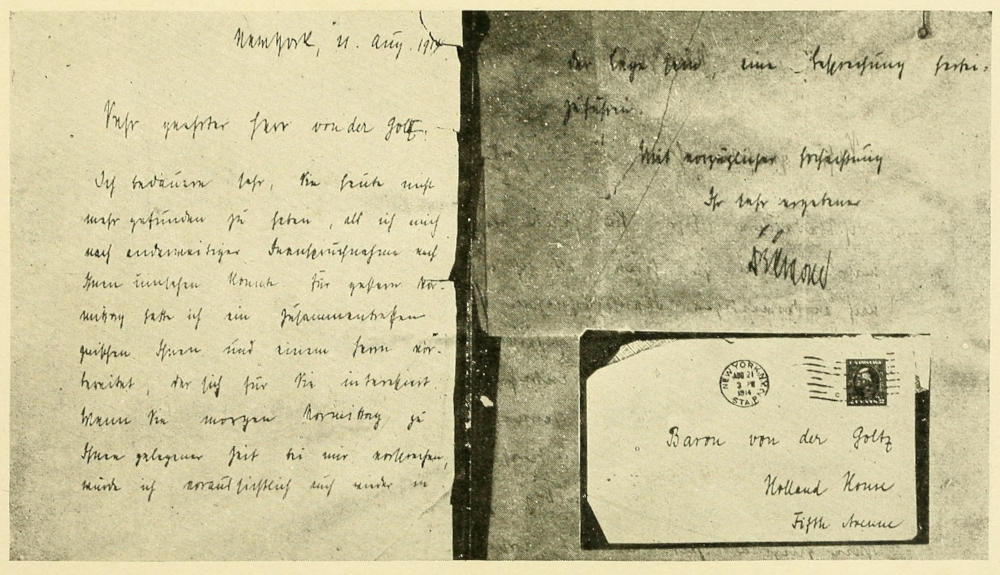 New York, 21. Aug. 1914
Sehr geehrter Herr von der Goltz.
Ich bedauere sehr, Sie heute nicht
mehr gefunden zu haben, als ich mich
nach anderweitiger Inanspruchnahme nach
Ihnen umsehen konnte. Für gestern Vor-
mittag hatte ich ein Zusammentreffen
zwischen Ihnen und einem Herrn vor-
bereitet, der sich für Sie interessirt.
Wenn Sie morgen Vormittag zu
Ihnen gelegener Zeit bei mir vorsprechen,
würde ich voraussichtlich auch wieder in
der Lage sein, eine Besprechung herbei-
zuführen.
Mit vorzüglicher Hochachtung
Ihr sehr ergebener
NEW YORK, N.Y.
AUG 21
3 PM
1914
STA.
Baron von der Goltz
Holland House
Fifth Avenue